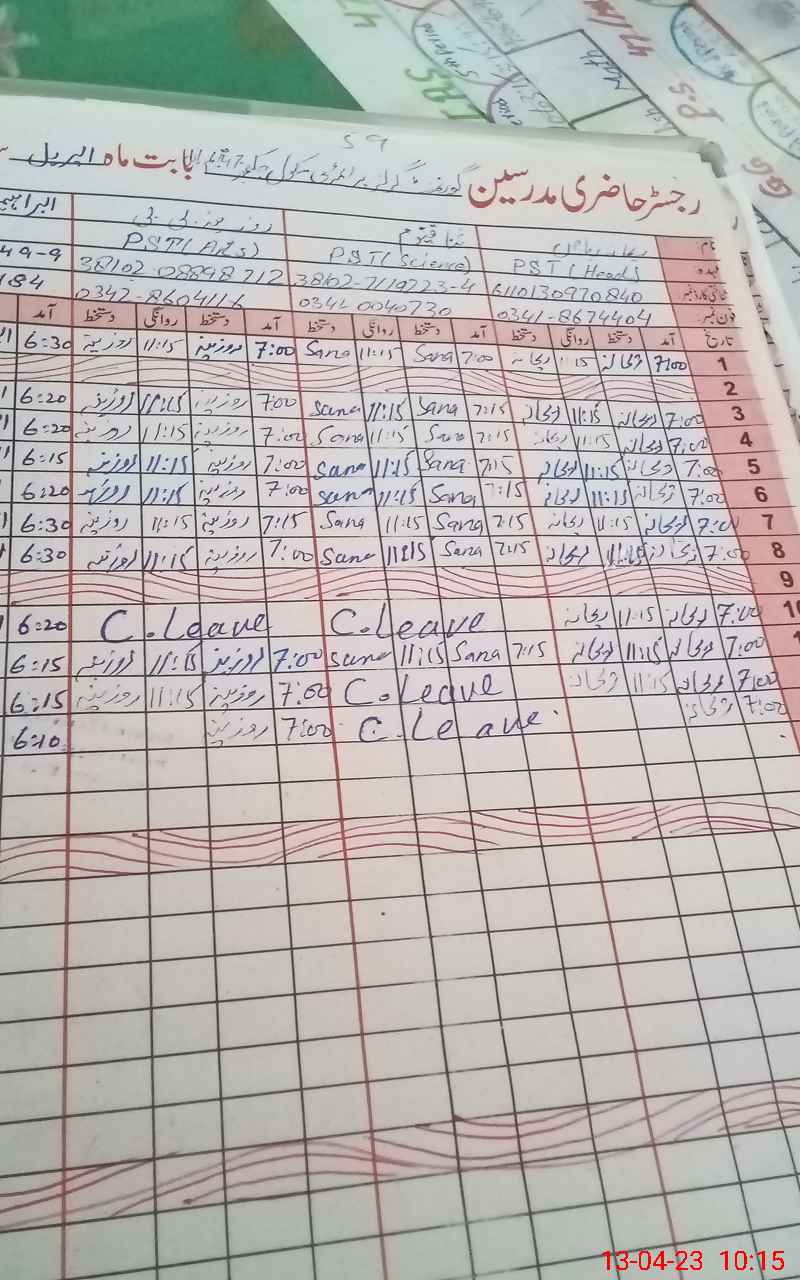 59
رجسٹر حاضری مدرسین گورنمنٹ گرلز پرائمری سکول بابت ماہ اپریل
نام: ثناء قیوم روزینہ بی بی
عہدہ PST (Head) PST (Science) PST (Arts)
شناختی کارڈ نمبر 6110130970840 38102-7119723-4 38102-08898712 49-9
فون نمبر 0341-8674404 0341 0040730 0342-8604116 184
تاریخ آمد دستخط روانگی دستخط آمد دستخط روانگی دستخط آمد دستخط روانگی دستخط آمد
1 7:00 ریحانہ 11:15 ریحانہ 7:00 Sana 11:15 Sana 7:00 روزینہ 11:15 روزینہ 6:30
2
3 7:00 ریحانہ 11:15 ریحانہ 7:15 Sana 11:15 Sana 7:00 روزینہ 11:15 روزینہ 6:20
4 7:00 ریحانہ 11:15 ریحانہ 7:15 Sana 11:15 Sana 7:00 روزینہ 11:15 روزینہ 6:20
5 7:00 ریحانہ 11:15 ریحانہ 7:15 Sana 11:15 Sana 7:00 روزینہ 11:15 روزینہ 6:15
6 7:00 ریحانہ 11:15 ریحانہ 7:15 Sana 11:15 Sana 7:00 روزینہ 11:15 روزینہ 6:20
7 7:00 ریحانہ 11:15 ریحانہ 7:15 Sana 11:15 Sana 7:15 روزینہ 11:15 روزینہ 6:30
8 7:00 ریحانہ 11:15 ریحانہ 7:15 Sana 11:15 Sana 7:00 روزینہ 11:15 روزینہ 6:30
9
10 7:00 ریحانہ 11:15 ریحانہ C.Leave C.Leave 6:20
1 7:00 ریحانہ 11:15 ریحانہ 7:15 Sana 11:15 Sana 7:00 روزینہ 11:15 روزینہ 6:15
7:00 ریحانہ 11:15 ریحانہ C.Leave 7:00 روزینہ 11:15 روزینہ 6:15
7:00 ریحانہ C.Leave 7:00 روزینہ 6:10
13-04-23 10:15